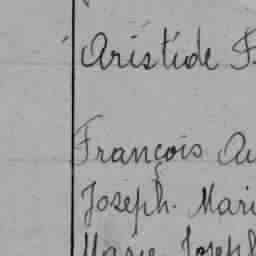 Aristide F
François Au
Joseph. Mari
Marie Joseph